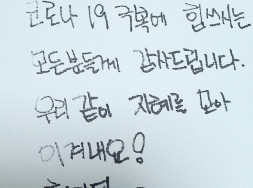 코로나 19 극복에 힘쓰시는
모든분들께 감사드립니다.
우리 같이 지혜를 모아
이겨내요!